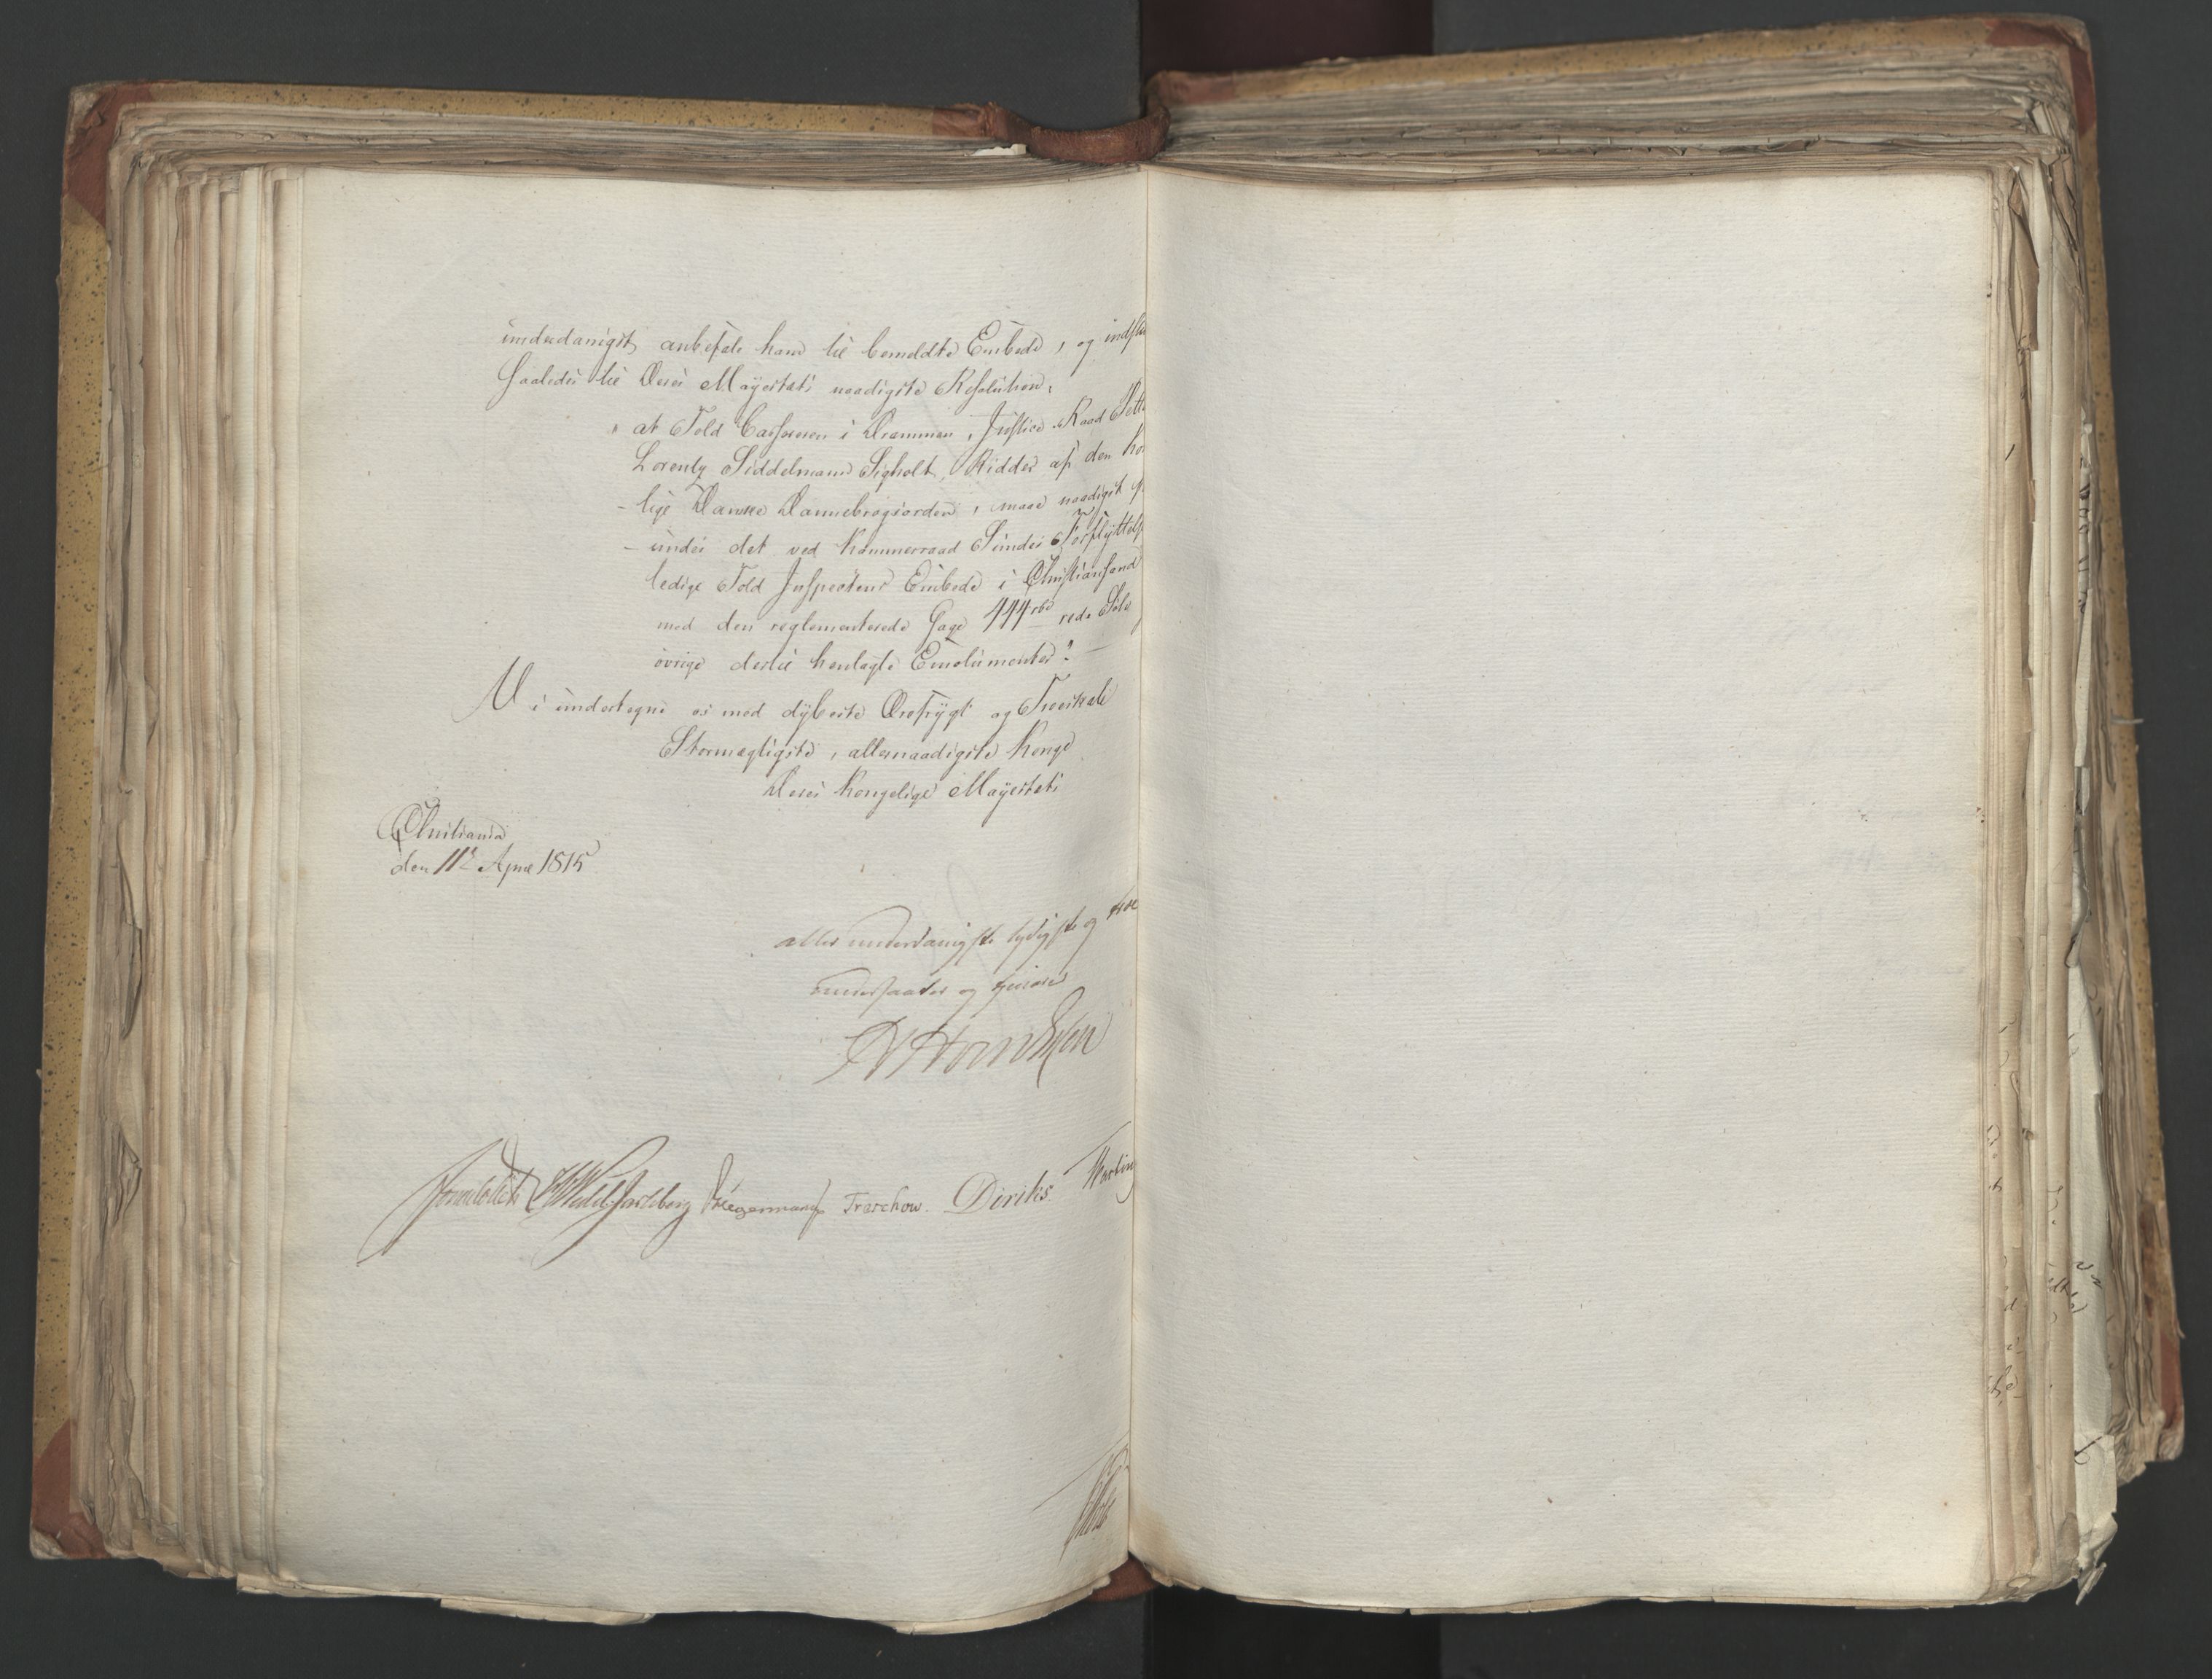 underdanigst anbefale ham til bemeldte Embede, og
saaledes til Deres Mayestæts naadigste Resolution:
" at Told Casserern i Drammen, Justice Raad
Lorentz Siddelmann Sigholt, Ridder af den
-lige Danske Dannebrogsorden, maae naadigst
- undes det ved Kammerraad Sundes Forflyttels
ledige Told Inspecteur Embede i Christiansand
med den reglementerede Gage 444 rbd rede Sølv
øvrige dertil henlagte Emolumenter?
Vi undertegne os med dybeste Ærefrygt og Troeskab
Stormægtigste, allernaadigste Konge
Deres Kongelige Mayestæts
Christiania
den 11te April 1815
allerunderdanigste lydigste og troe
undersaatter og tjenere
Sommerhielm Wedel Jarlsberg Hegermann Treschow. Diriks
Holst